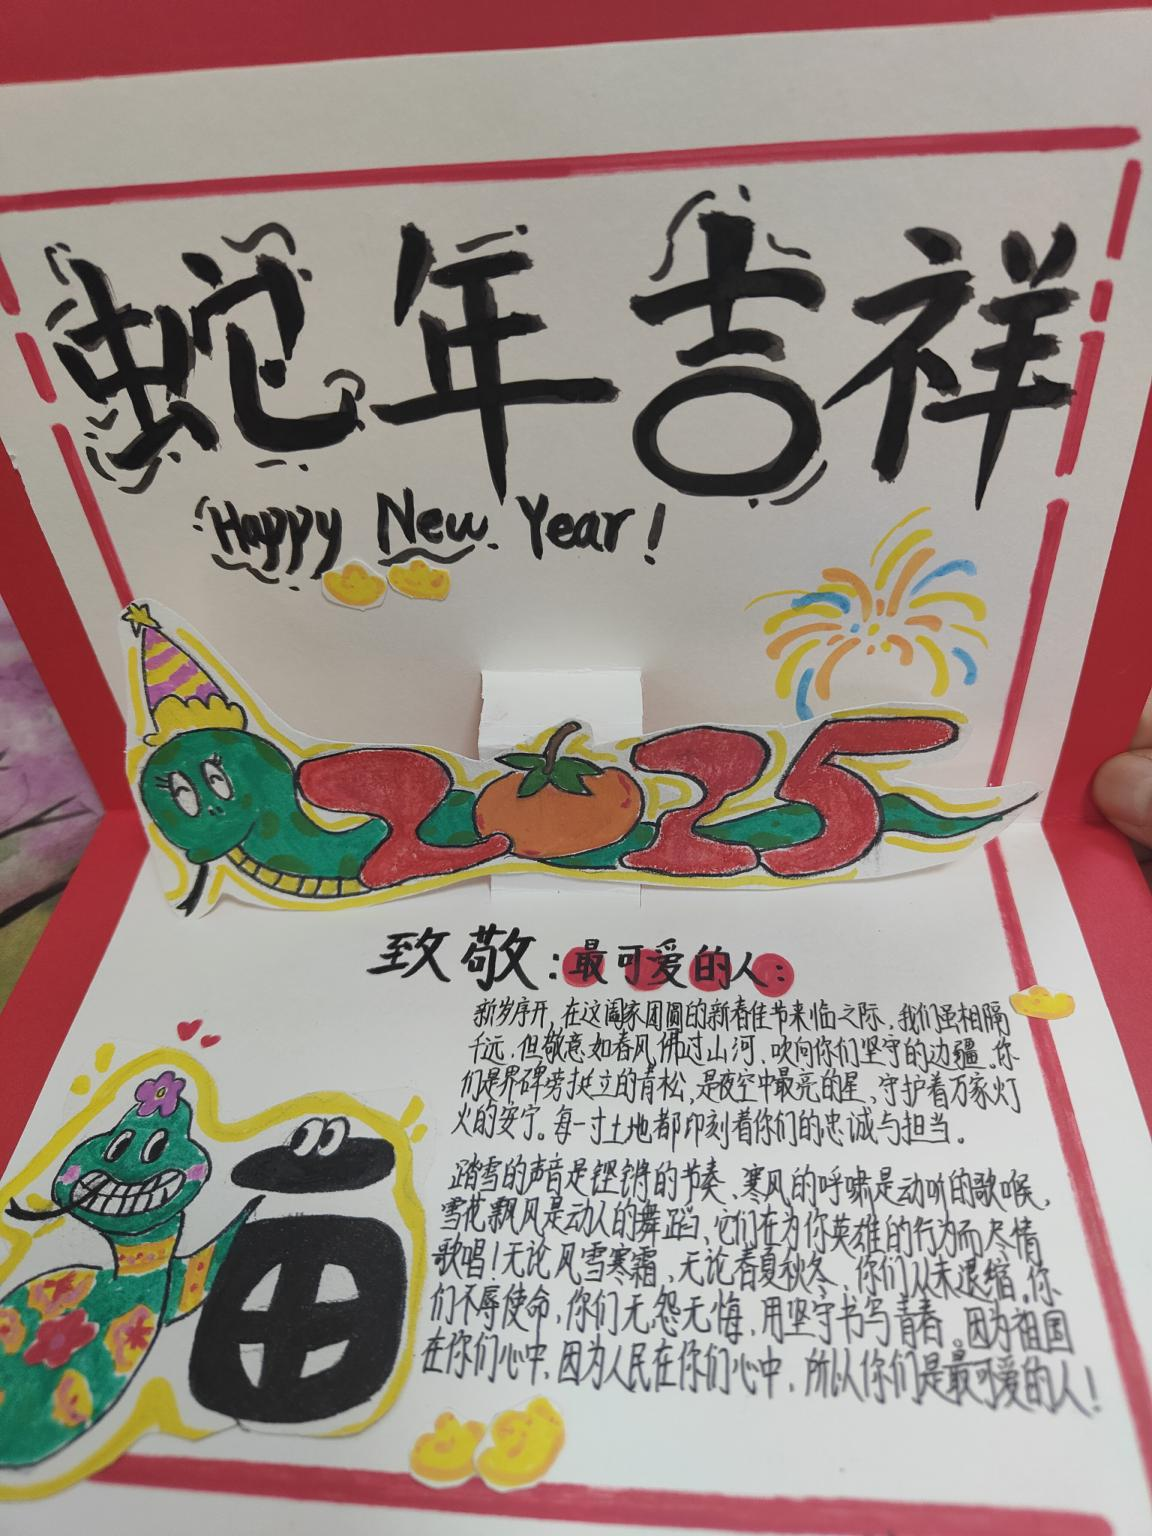 蛇年吉祥
Happy New Year!
2025
致敬:最可爱的人:
新岁序开,在这阖家团圆的新春佳节来临之际,我们虽相隔
千远,但敬意如春风,佛过山河,吹向你们坚守的边疆,你
们是界碑旁挺立的青松,是夜空中最亮的星,守护着万家灯
火的安宁。每一寸土地都印刻着你们的忠诚与担当。
踏雪的声音是铿锵的节奏、寒风的呼啸是动听的歌喉,
雪花飘风是动人的舞蹈,它们在为你英雄的行为而尽情
歌唱!无论风雪寒霜,无论春夏秋冬,你们从未退缩,你
们不辱使命,你们无怨无悔,用坚守书写青春。因为祖国
在你们心中,因为人民在你们心中,所以你们是最可爱的人!